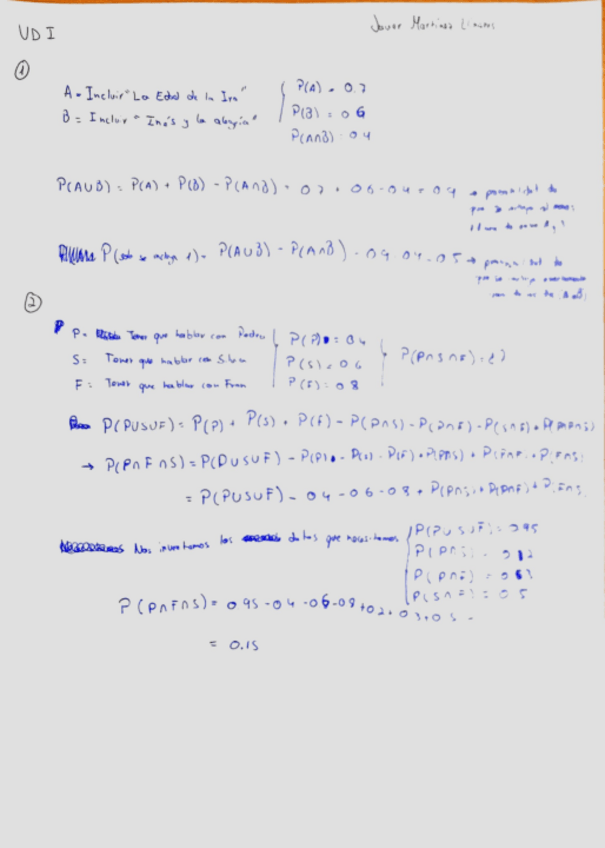 UD I
Javier Martinez Linares
①
A = Incluir "La Edad de la Ira"
P(A) = 0.7
B = Incluir "Inés y la alegría"
P(B) = 0.6
P(A∩B) = 0.4
P(A∪B) = P(A) + P(B) - P(A∩B) = 0.7 + 0.6 - 0.4 = 0.9 → probabilidad de
que se incluya al menos
P(solo se incluya 1) = P(A∪B) - P(A∩B) = 0.9 - 0.4 = 0.5 → probabilidad de
que se incluya
②
P = Tener que hablar con Pedro
P(P) = 0.4
S = Tener que hablar con Silvia
P(S) = 0.6
P(P∩S∩F) = ¿?
F = Tener que hablar con Fran
P(F) = 0.8
P(P∪S∪F) = P(P) + P(S) + P(F) - P(P∩S) - P(P∩F) - P(S∩F) + P(P∩F∩S)
→ P(P∩F∩S) = P(P∪S∪F) - P(P) - P(S) - P(F) + P(P∩S) + P(P∩F) + P(F∩S)
= P(P∪S∪F) - 0.4 - 0.6 - 0.8 + P(P∩S) + P(P∩F) + P(F∩S)
Nos inventamos los datos que necesitamos
P(P∪S∪F) = 0.95
P(P∩S) =
P(P∩F) =
P(S∩F) = 0.5
P(P∩F∩S) = 0.95 - 0.4 - 0.6 - 0.8 + 0.2 + 0.3 + 0.5 =
= 0.15